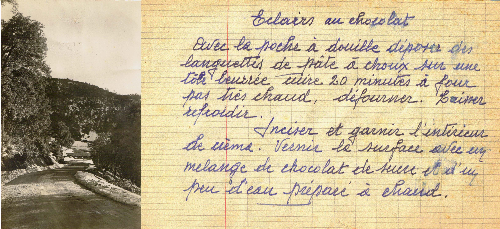 Eclairs au chocolat
Avec la poche à douille déposer des
languettes de pâte à choux sur une
tôle beurrée cuire 20 minutes à four
pas très chaud, défourner. Laisser
refroidir.
Inciser et garnir l'intérieur
de crème. Vernir la surface avec un
mélange de chocolat de sucre et d'un
peu d'eau préparé à chaud.